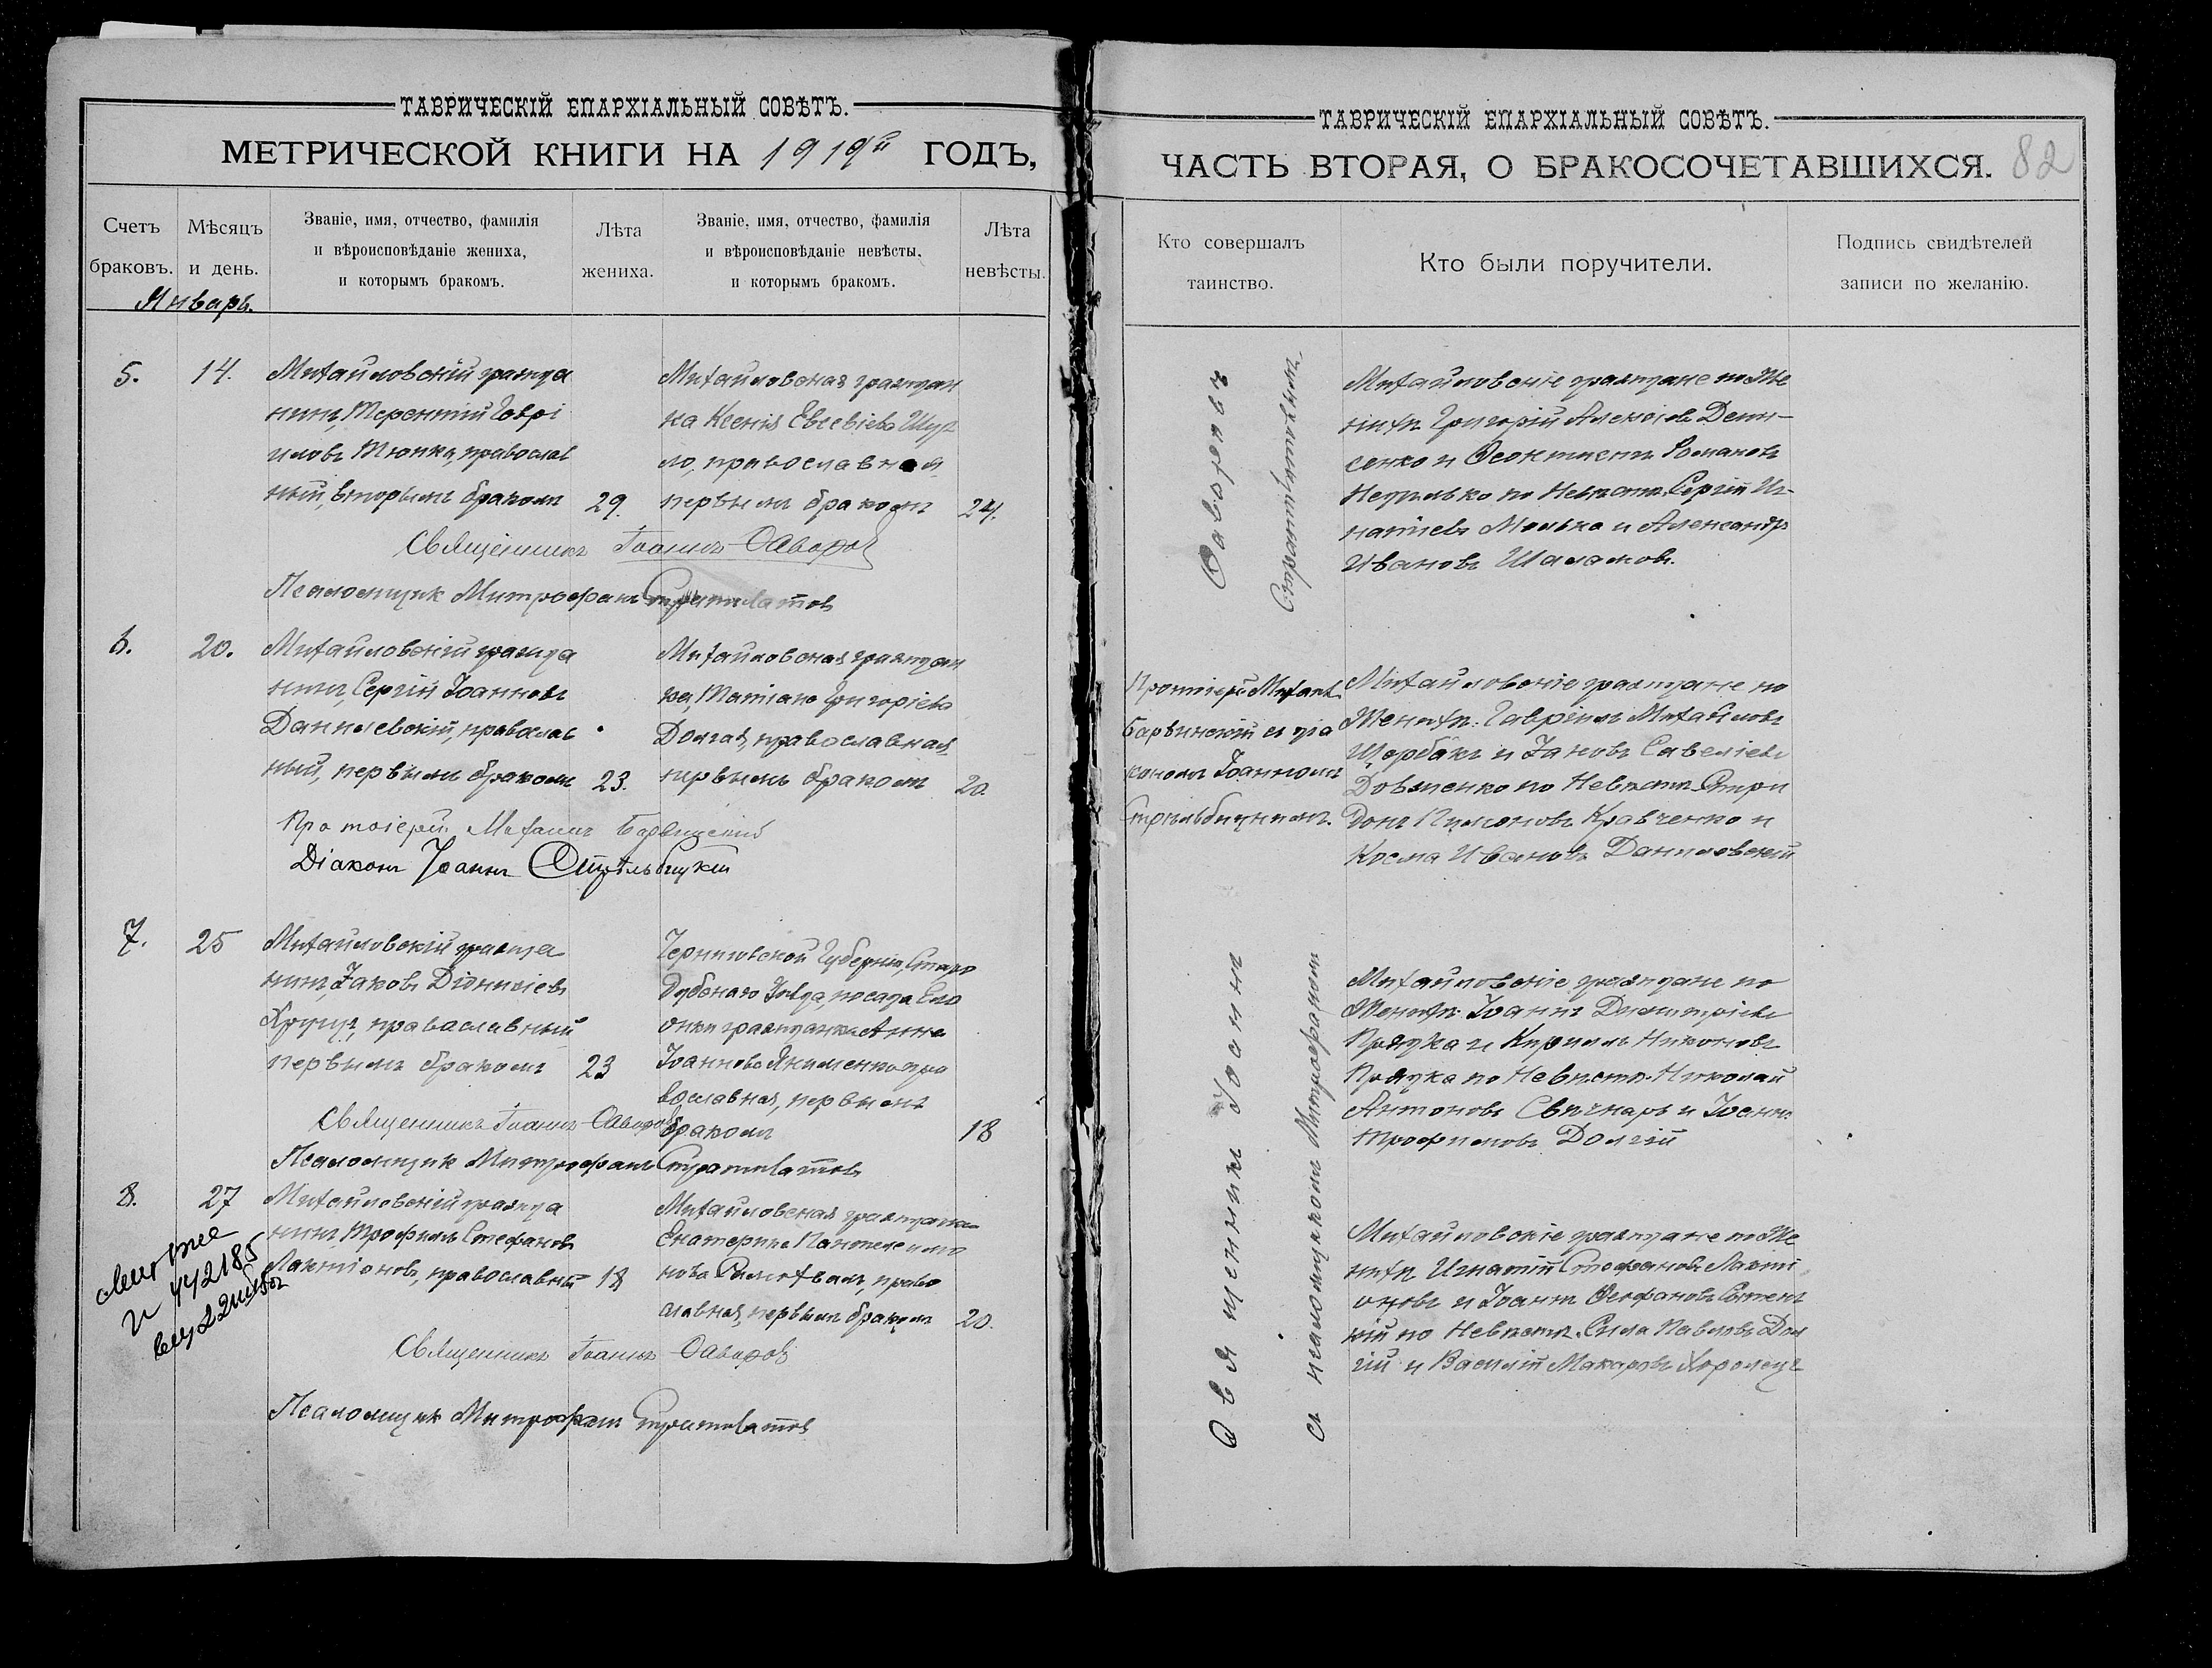 ТАВРИЧЕСКІЙ ЕПАРХІАЛЬНЫЙ СОВѢТЪ.
МЕТРИЧЕСКОЙ КНИГИ НА 1919й ГОДЪ,
Счетъ браковъ.
Мѣсяцъ и день.
Званіе, имя, отчество, фамилія
и вѣроисповѣданіе жениха,
и которымъ бракомъ.
Лѣта
жениха.
Званіе, имя, отчество, фамилія
и вѣроисповѣданіе невѣсты,
и которымъ бракомъ.
Лѣта
невѣсты.
Январь.
5.
14.
Михайловскій гражда
нинъ, Терентій Гаврі
иловъ Тюпка, православ
ный, вторымъ бракомъ
29.
Михайловская граждан
ка Ксенія Евсевіева Шул
ло, православная
первымъ бракомъ
24.
Священникъ Іоаннъ Саворовъ
Псаломщик Митрофанъ Стратилатов
6.
20.
Михайловскій гражда
нинъ, Сергій Іоанновъ
Данилевскій, православ
ный, первымъ бракомъ
23.
Михайловская граждан
ка, Татіана Григоріева
Долгая, православная
первымъ бракомъ
20.
Протоіерей Михаилъ Барвинскій
Діаконъ Іоаннъ Стрѣльбицкій
7.
25
Михайловскій гражда
нинъ, Іаковъ Діонисіевъ
православный
первымъ бракомъ
23
Черниговской Губерніи, Старо
дубскаго Уѣзда, посада Ело
онки гражданка Анна
Іоаннова Якименко пра
вославная, первымъ
бракомъ
18
Священникъ Іоаннъ Саворовъ
Псаломщик Митрофанъ Стратилатов
8.
27
Михайловскій гражда
нинъ, Трофимъ Стефановъ
Лактіоновъ, православный
18
Михайловская гражданка
Екатерина Пантелеимо
нова право
славная, первымъ бракомъ
20.
442185
Священникъ Іоаннъ Саворовъ
Псаломщик Митрофанъ Стратилатов
ТАВРИЧЕСКІЙ ЕПАРХІАЛЬНЫЙ СОВѢТЪ.
ЧАСТЬ ВТОРАЯ, О БРАКОСОЧЕТАВШИХСЯ.
82
Кто совершалъ
таинство.
Кто были поручители.
Подпись свидѣтелей
записи по желанію.
Саворовъ
Стратилатовымъ.
Михайловскіе граждане по Же
нихѣ Григорій Алексіевъ Дени-
сенко и Феоктистъ Романовъ
Недилько по Невѣстѣ Сергій Иг-
натіевъ Малько и Александръ
Ивановъ Шаламовъ.
Протоіерей Михаилъ
Барвинскій съ діа
кономъ Іоанномъ
Стрѣльбицкимъ.
Михайловскіе граждане по
Женихѣ: Гавріилъ Михайловъ
Щербакъ и Іаковъ Савеліевъ
Довженко по Невѣстѣ Спири
донъ Пименовъ Кравченко и
Косма Ивановъ Даниловскій
Священникъ Іоаннъ
съ псаломщикомъ Митрофаномъ
Михайловскіе граждане по
Женихѣ Іоаннъ Димитріевъ
Прядка и Кириллъ Никоновъ
Прядка по Невѣстѣ Николай
Антоновъ Свѣчкарь и Іоаннъ
Трофимовъ Долгій
Михайловскіе граждане по Же
нихѣ Игнатій Стефановъ Лакті
оновъ и Іоаннъ Феофановъ
по Невѣстѣ. Сила Павловъ Дол
гій и Василій Макаровъ Хоролецъ